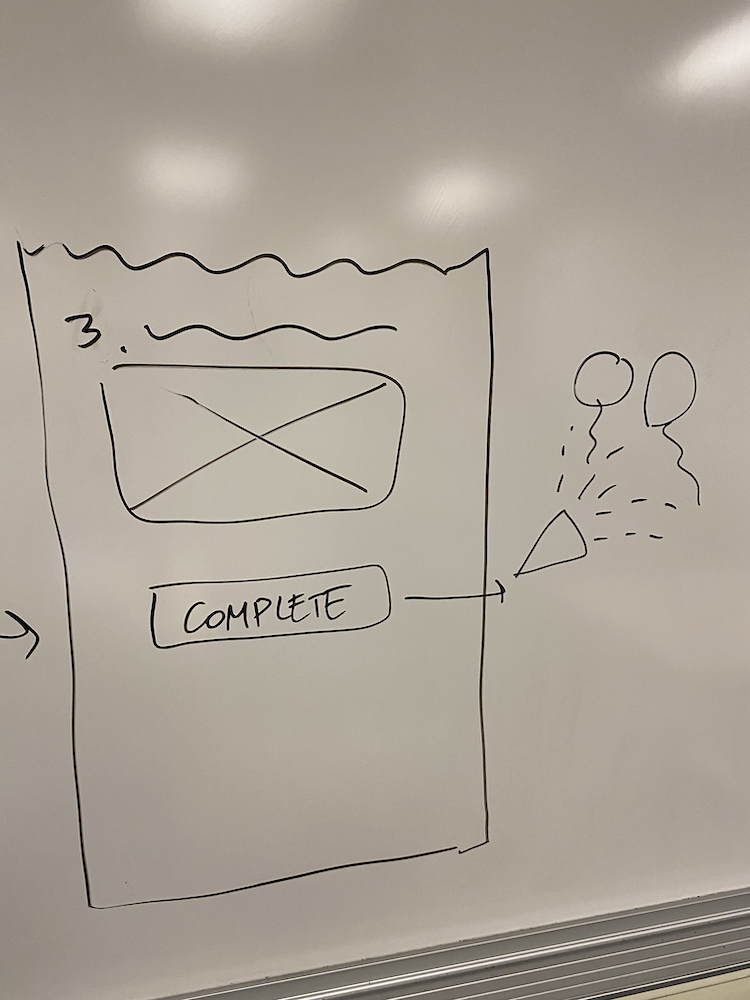 3.
COMPLETE